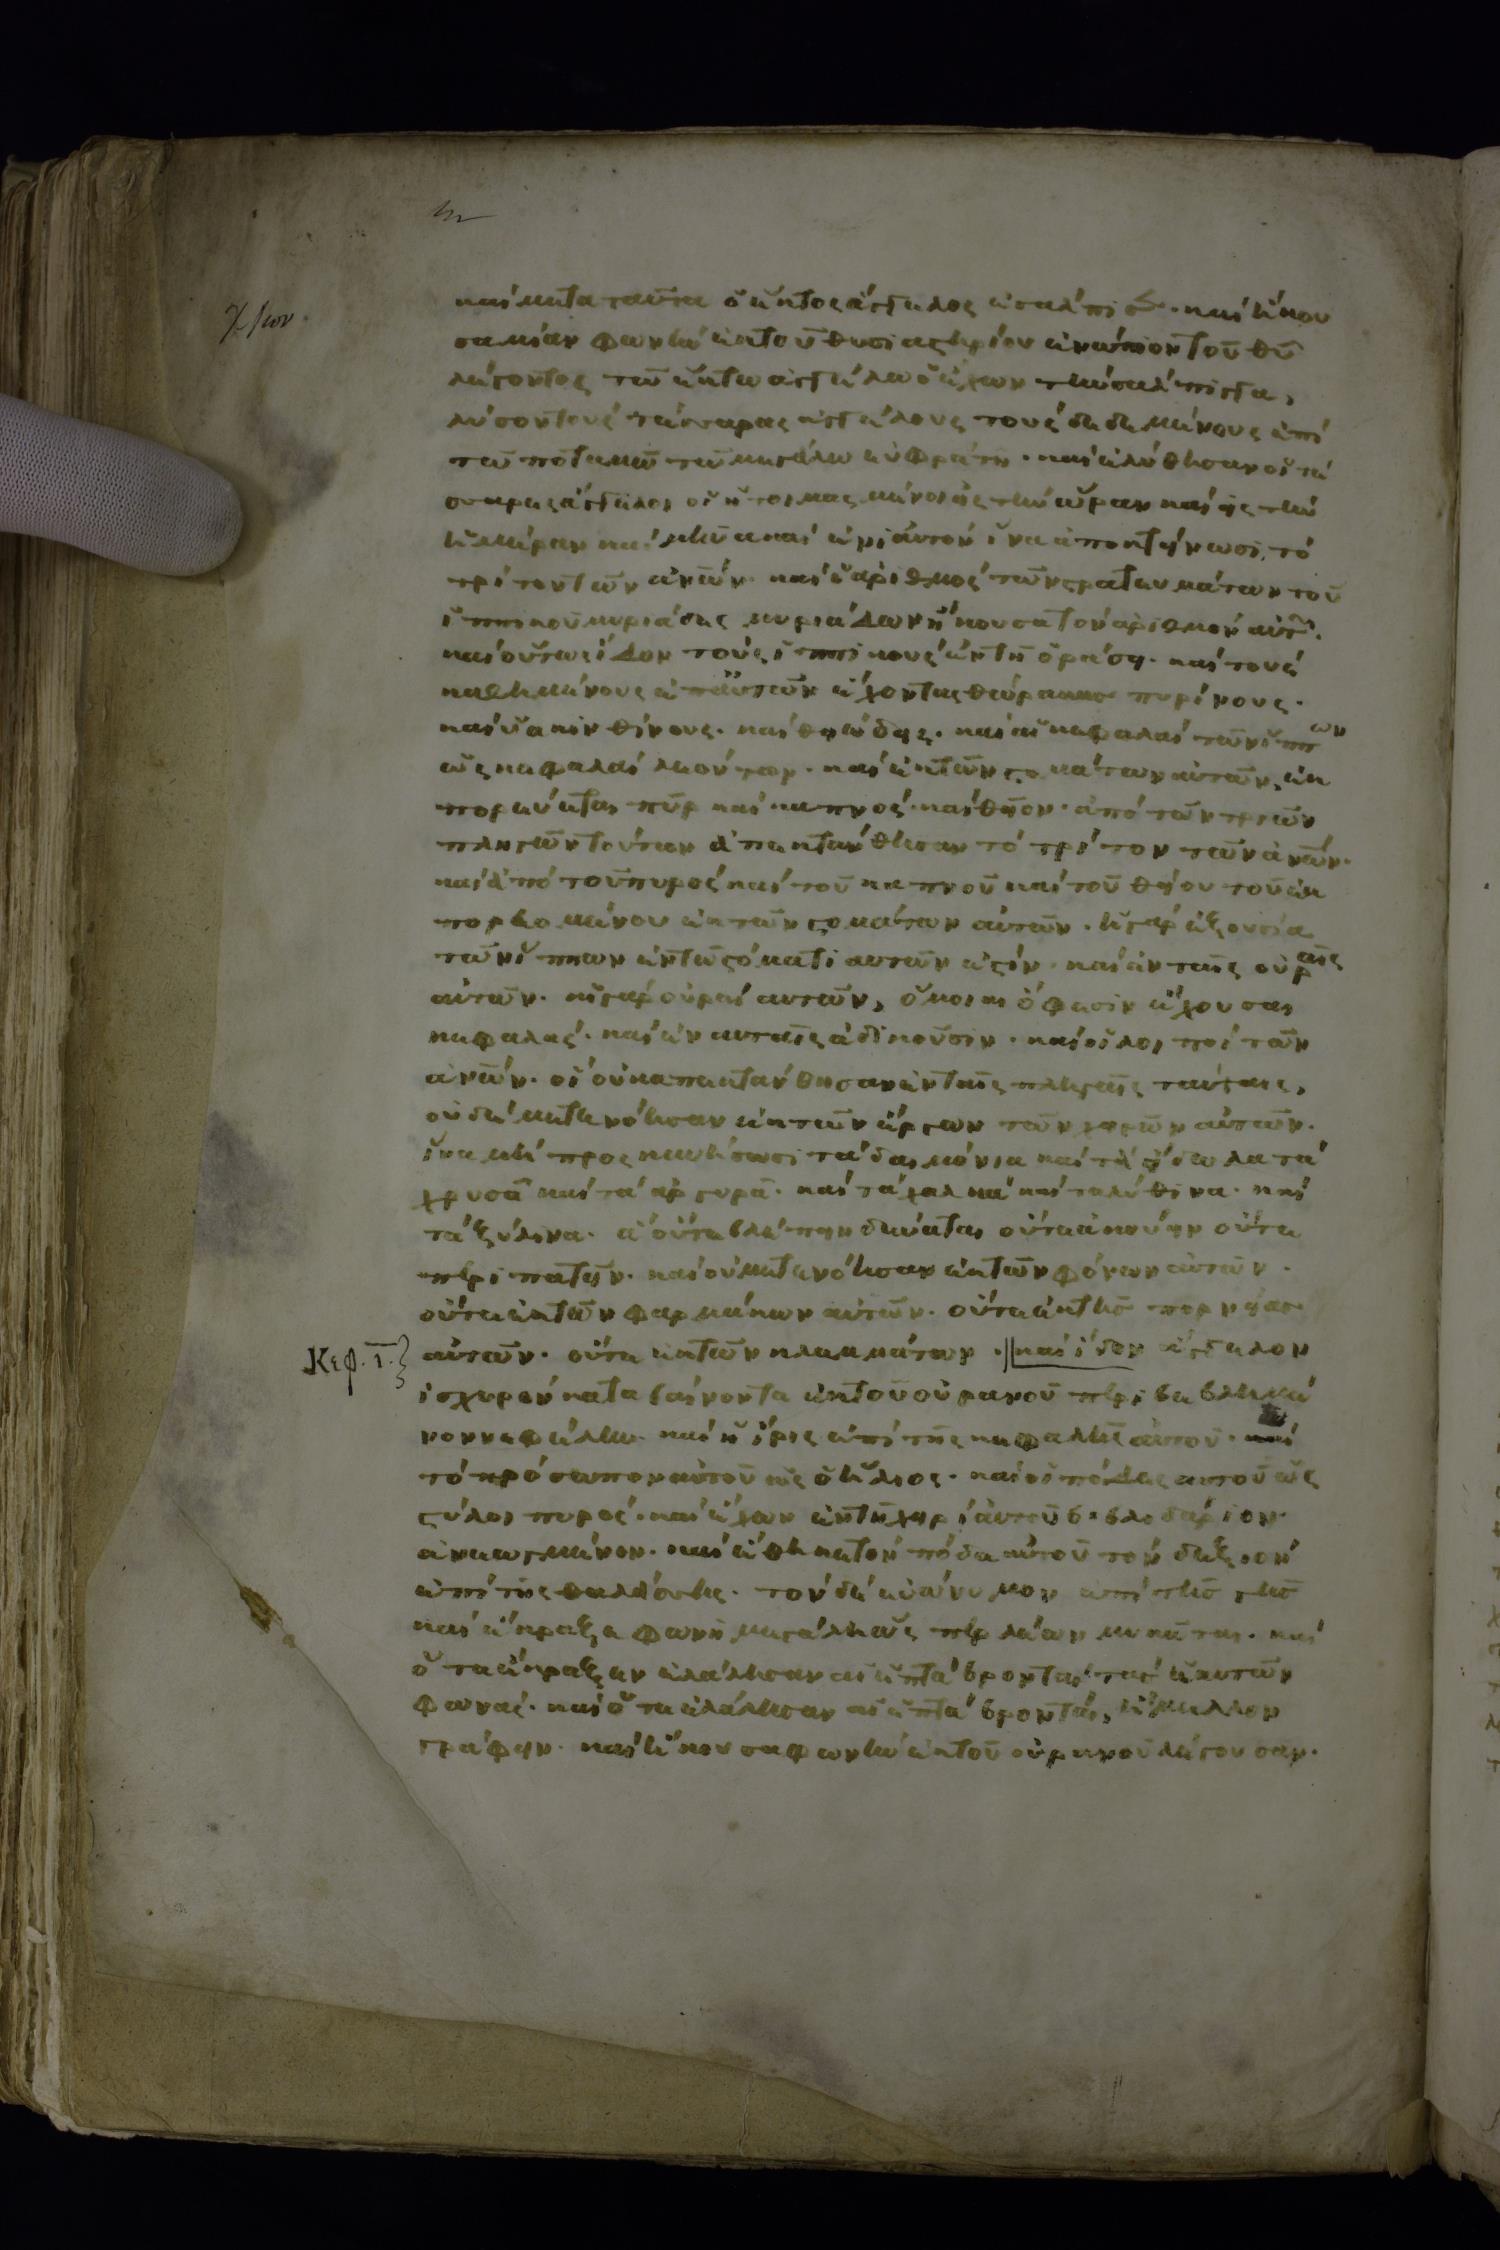 καὶ μετα ταῦτα ὁ ἕκτος ἄγγελος ἐσάλπισε· καὶ ἤκου
σα μίαν φωνὴν ἐκ τοῦ θυσιαστηρίου ἐνώπιον τοῦ θῡ
λέγοντος τῶ ἕκτω ἀγγέλω ὁ ἔχων τὴν σάλπιγγα,
λύσον τοὺς τέσσαρας ἀγγέλους τοὺς δεδεμένους ἐπὶ
τῶ ποταμῶ τῶ μεγάλω εὐφράτη· καὶ ἐλύθησαν οἱ τέ
σσαρες ἄγγελοι οἱ ἡτοιμασμένοι εἰς τὴν ὥραν καὶ εἰς τὴν
ἡμέραν καὶ μῆνα καὶ ἐνιαυτὸν ἵνα ἀποκτείνωσι, τὸ
τρίτον τῶν ἀν̄ων· καὶ ὁ ἀριθμὸς τῶν στρατευμάτων τοῦ
ἱππικοῦ μυριάδες μυριάδων ἤκουσα τὸν ἀριθμὸν αὐτ·
καὶ οὕτως ἴδον τοὺς ἱππικοὺς ἐν τῆ ὁράσει· καὶ τοὺς
καθημένους ἐπ αὐτῶν ἔχοντας θώρακας πυρίνους·
καὶ ὑακινθίνους· καὶ θειώδεις· καὶ αἱ κεφαλαὶ τῶν ἵππων
ὡς κεφαλαὶ λεόντων· καὶ ἐκ τῶν στομάτων αὐτῶν, ἐκ
πορεύεται πῦρ καὶ καπνὸς· καὶ θεῖον· ἀπὸ τῶν τριῶν
πληγῶν τούτων ἀπεκτάνθησαν τὸ τρίτον τῶν ἀν̄ων·
καὶ ἀπὸ τοῦ πυρὸς καὶ τοῦ καπνοῦ καὶ τοῦ θείου τοῦ ἐκ
πορευομένου ἐκ τῶν στομάτων αὐτῶν· ἡ γὰρ ἐξουσία
τῶν ἵππων ἐν τῶ στόματι αυτῶν ἐστίν· καὶ ἐν ταῖς οὐραῖς
αὐτῶν· αἱ γὰρ οὐραὶ αυτῶν, ὅμοιαι ὄφεσιν ἔχουσαι
κεφαλάς· καὶ ἐν αυταῖς ἀδικοῦσιν· καὶ οἱ λοι ποὶ τῶν
ἀν̄ων· οἳ οὐκ απεκτάνθησαν ἐν ταῖς πληγαῖς ταύταις,
οὐδὲ μετενόησαν ἐκ τῶν ἔργων τῶν χειρῶν αὐτῶν·
ἵνα μὴ προσκυνήσωσι τὰ δαιμόνια καὶ τὰ εἴδωλα τὰ
χρυσᾶ καὶ τὰ αργυρᾶ· καὶ τὰ χαλκὰ καὶ τα λίθινα· καὶ
τὰ ξύλινα· ἃ οὔτε βλέπειν δύναται οὔτε ἀκούειν οὔτε
περιπατεῖν· καὶ οὐ μετενόησαν ἐκ τῶν φόνων αὐτῶν·
οὔτε ἐκ τῶν φαρμάκων αὐτῶν· οὔτε ἐκ τῆς πορνείας
Κεφ. ι. αὐτῶν· οὔτε ἐκ τῶν κλεμμάτων· καὶ ἴδον ἄγγελον
ἰσχυρὸν καταβαίνοντα ἐκ τοῦ οὐρανοῦ περιβεβλημέ
νον νεφέλην· καὶ ἡ ἶρις ἐπὶ τῆς κεφαλῆς αὐτοῦ· καὶ
τὸ πρόσωπον αὐτοῦ ὡς ὁ ἥλιος· καὶ οἱ πόδες αυτοῦ ὡς
στύλοι πυρὸς· καὶ ἔχων ἐν τῆ χειρὶ αὐτοῦ βιβλιδάριον
ἀνεωγμένον· καὶ ἔθηκε τὸν πόδα αὐτοῦ τὸν δεξιὸν
ἐπὶ τῆς θαλάσσης· τὸν δὲ εὐώνυμον ἐπὶ τῆς γῆς
καὶ ἔκραξε φωνῆ μεγάλη ὡς περ λέων μυκᾶται· καὶ
ὅτε ἔκραξεν ἐλάλησαν αἱ ἑπτὰ βρονταὶ τὰς ἑαυτῶν
φωνάς· καὶ ὅτε ἐλάλησαν αἱ ἑπτὰ βρονταί, ἤμελλον
γράφειν· καὶ ἤκουσα φωνὴν ἐκ τοῦ οὐρανοῦ λέγουσαν·